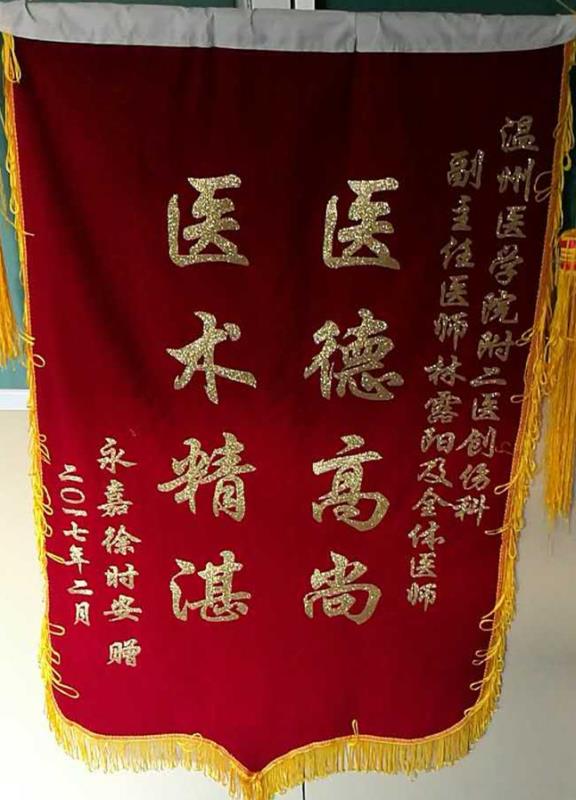 温州医学院附二医创伤科
副主任医师林露阳及全体医师
医德高尚
医术精湛
永嘉徐时安 赠
二〇一七年二月